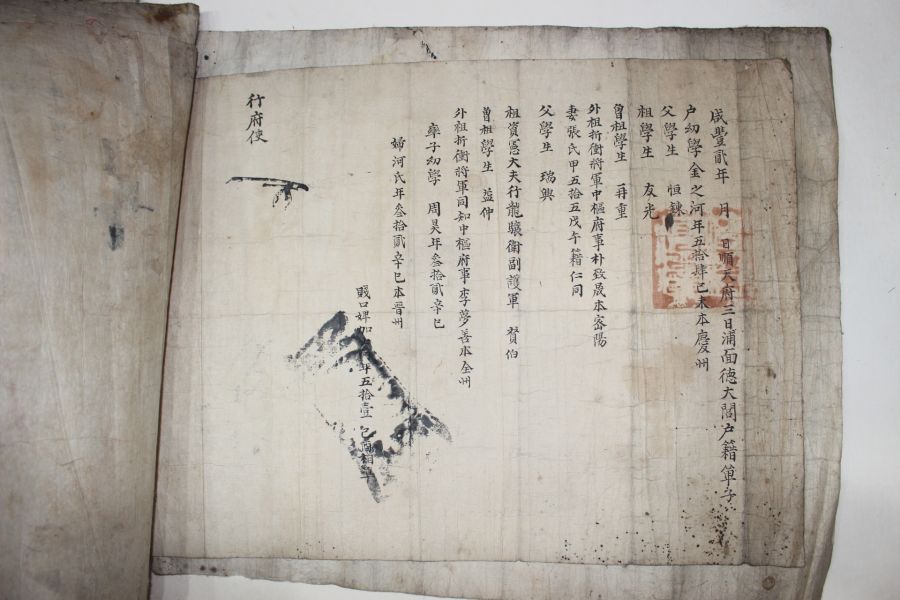 咸豐貳年 月 日順天府三日浦面德大閣戶籍單子
戶幼學金之河年五拾肆己未本慶州
父學生 恒鍊
祖學生 友光
曾祖學生 再重
外祖折衝將軍中樞府事朴致晟本密陽
妻張氏甲五拾五戊午籍仁同
父學生 瑞興
祖資憲大夫行龍驤衛副護軍 賛伯
曾祖學生 益仲
外祖折衝將軍同知中樞府事李夢善本全州
率子幼學 周昊年叁拾貳辛巳
婦河氏年叁拾貳辛巳本晋州
賤口婢加 年五拾壹
行府使